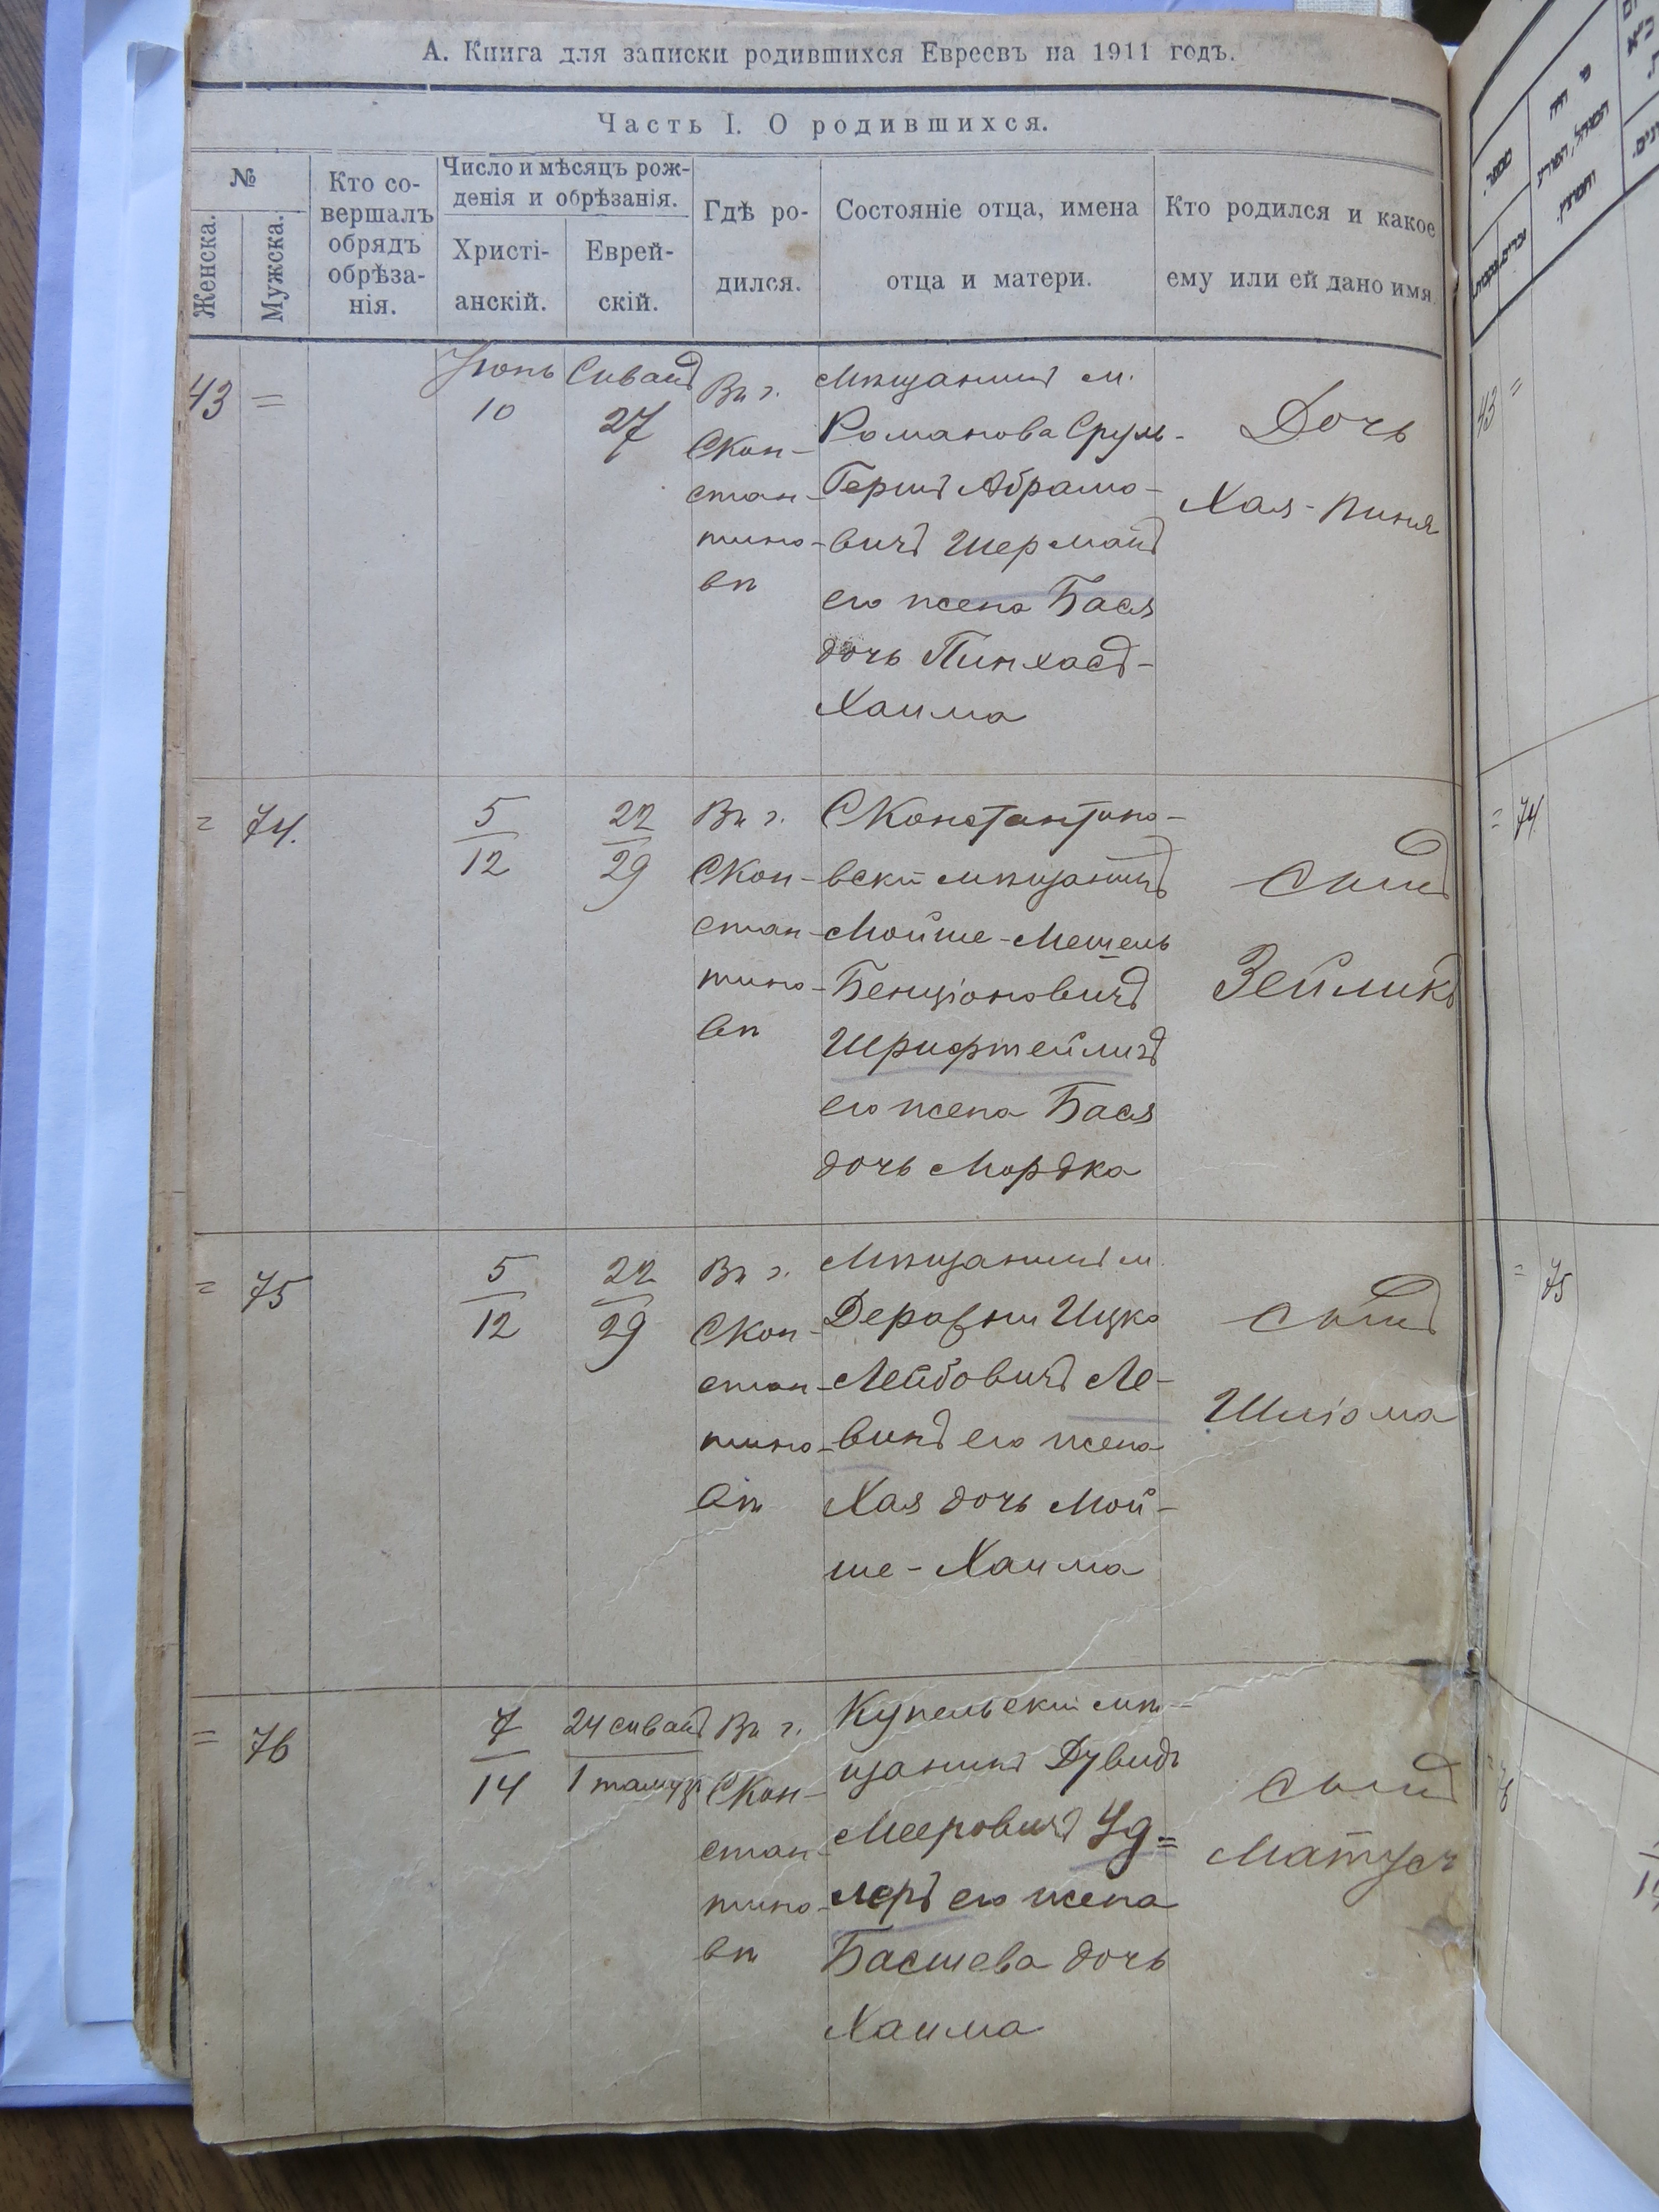 А. Книга для записки родившихся Евреевъ на 1911 годъ.
Часть I. О родившихся.
№
Женска.
Мужска.
Кто со-
вершалъ
обрядъ
обрѣза-
нія.
Число и мѣсяцъ рож-
денія и обрѣзанія.
Христі-
анскій.
Еврей-
скій.
Гдѣ ро-
дился.
Состояніе отца, имена
отца и матери.
Кто родился и какое
ему или ей дано имя
43
=
Іюнь
10
Сиванъ
27
Въ г.
СКон-
стан-
тино-
вѣ
Мѣщанинъ м.
Романова Сруль-
Гершъ Абрамо-
вичъ Шерманъ
его жена Бася
дочь Пинхасъ-
Хаима
Дочь
Хая-Пиня
=
74.
5
12
22
29
Въ г.
СКон-
стан-
тино-
вѣ
СКонстантино-
вскій мѣщанинъ
Мойше-Мешель
Бенціоновичъ
Шрифтейлигъ
его жена Бася
дочь Мордка
Сынъ
Зейликъ
=
75
5
12
22
29
Въ г.
СКон-
стан-
тино-
вѣ
Мѣщанинъ м.
Деражни Ицко
Лейбовичъ Ле-
винъ его жена
Хая дочь Мой-
ше-Хаима
Сынъ
Шліома
=
76
7
14
24 сиванъ
1 тамуз
Въ г.
СКон-
стан-
тино-
вѣ
Купельскій мѣ-
щанинъ Дувидъ
Мееровичъ Уд=
леръ его жена
Басшева дочь
Хаима
Сынъ
Матусъ
43 =
= 74
= 75